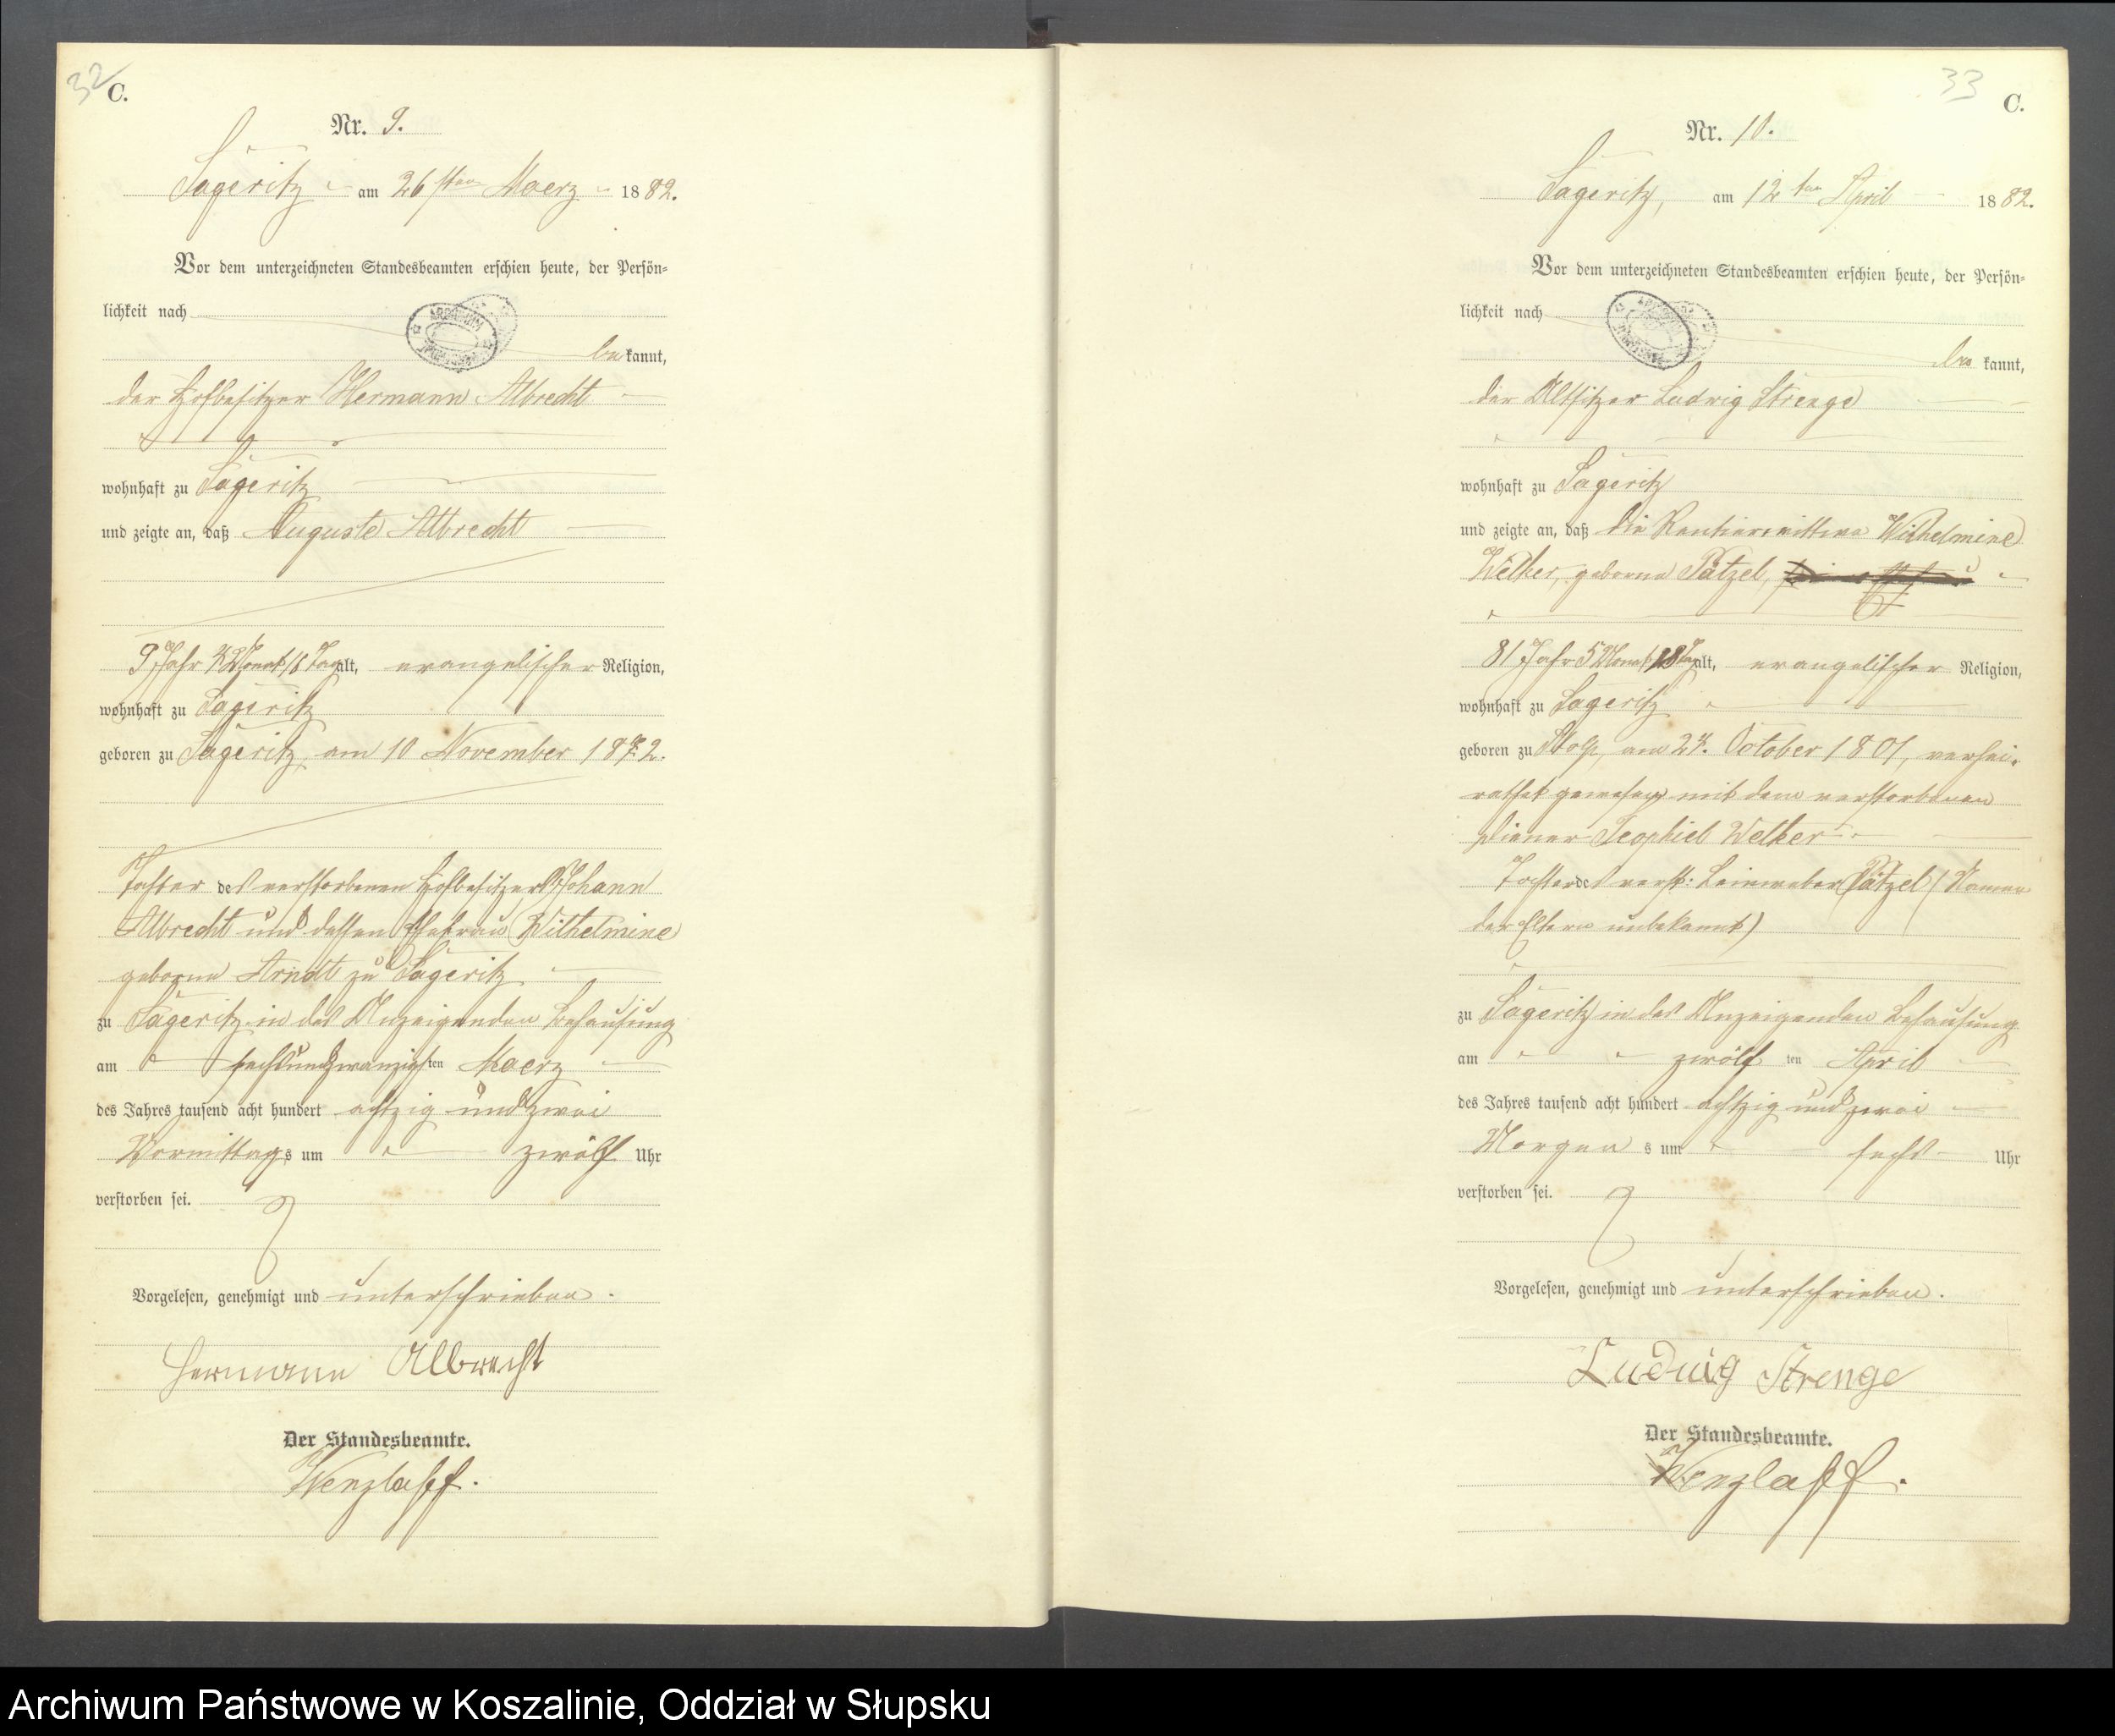 32
C.
Nr. 9.
Sageritz am 26sten Maerz 1882.
Vor dem unterzeichneten Standesbeamten erschien heute, der Persön=
lichkeit nach
bekannt,
der Hofbesitzer Hermann Albrecht
wohnhaft zu Sageritz
und zeigte an, daß Auguste Albrecht
9 Jahr Monat 16 Tag alt, evangelischer Religion,
wohnhaft zu Sageritz
geboren zu Sageritz, am 10 November 1872.
Tochter des verstorbenen Hofbesitzers Johann
Albrecht und dessen Ehefrau Wilhelmine
geborne Arndt zu Sageritz
zu Sageritz in des Anzeigenden Behausung
am sechsundzwanzigsten Maerz
des Jahres tausend acht hundert achtzig und zwei
Vormittags um zwölf Uhr
verstorben sei.
Vorgelesen, genehmigt und unterschrieben.
Hermann Albrecht
Der Standesbeamte.
Wenzlaff.
33
C.
Nr. 10.
Sageritz, am 12ten April 1882.
Vor dem unterzeichneten Standesbeamten erschien heute, der Persön=
lichkeit nach
bekannt,
der Altsitzer Ludwig Strenge
wohnhaft zu Sageritz
und zeigte an, daß die Rentierwittwe Wilhelmine
Welker, geborne Pätzel,
81 Jahr 5 Monat 18 Tag alt, evangelischer Religion,
wohnhaft zu Sageritz
geboren zu Stolp, am 24. October 1801, verhei-
rathet gewesen mit dem verstorbenen
Diener Teophiel Welker
Tochter des verst: Leinweber Pätzel (Namen
der Eltern unbekannt)
zu Sageritz in des Anzeigenden Behausung
am zwölften April
des Jahres tausend acht hundert achtzig und zwei
Morgens um sechs Uhr
verstorben sei.
Vorgelesen, genehmigt und unterschrieben.
Ludwig Strenge
Der Standesbeamte.
Wenzlaff.
Archiwum Państwowe w Koszalinie, Oddział w Słupsku